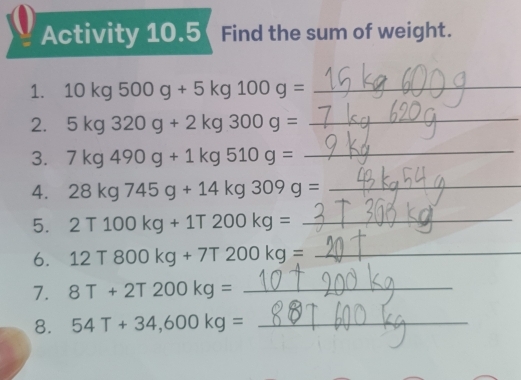 Activity 10.5 Find the sum of weight.
1. 10 kg 500 g + 5 kg 100 g = 15 kg 600 g
2. 5 kg 320 g + 2 kg 300 g = 7 kg 620 g
3. 7 kg 490 g + 1 kg 510 g = 9 kg
4. 28 kg 745 g + 14 kg 309 g = 43 kg 54 g
5. 2 T 100 kg + 1T 200 kg = 3 T 300 kg
6. 12 T 800 kg + 7T 200 kg = 20 T
7. 8 T + 2T 200 kg = 10 T 200 kg
8. 54 T + 34,600 kg = 88T 600 kg